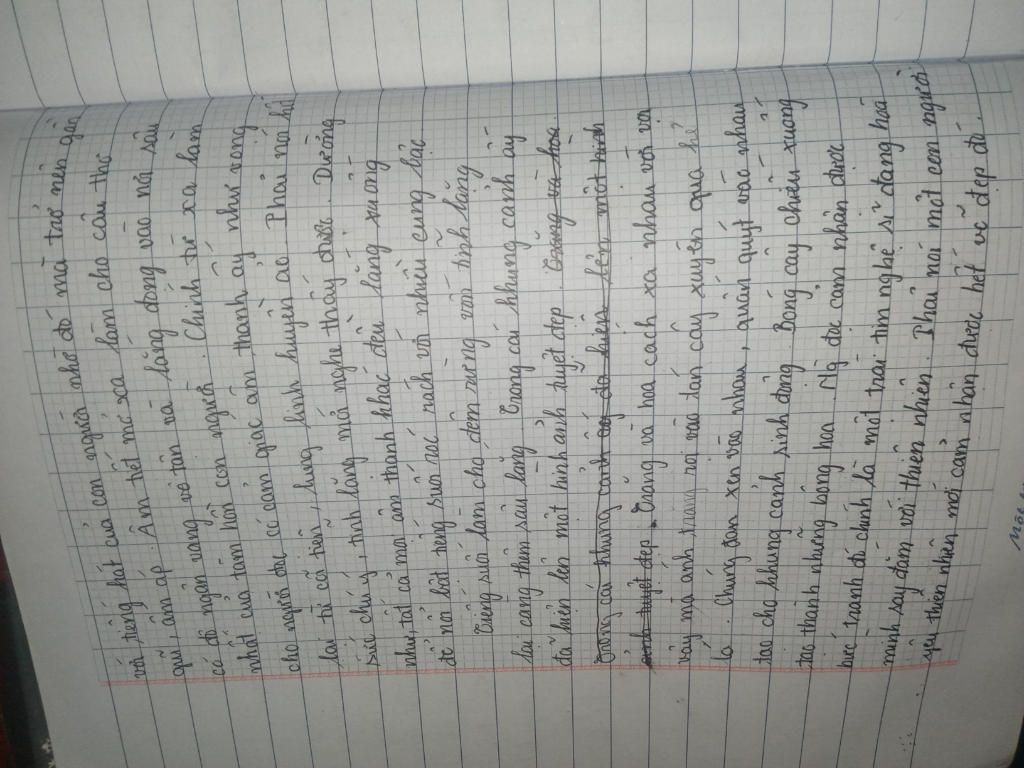 với tiếng hát của con người nhờ đó mà trở nên gần
gũi, ấm áp. Âm tiết mở xa làm cho câu thơ
có độ ngân vang vô tận và lắng đọng vào nơi sâu
nhất của tâm hồn con người. Chính từ xa làm
cho người đọc có cảm giác âm thanh ấy như vọng
lại từ cõi tiên, hưng linh huyền ảo. Phải nói hết
sức chú ý, tĩnh lặng mới nghe thấy được. Dường
như, tất cả mọi âm thanh khác đều lắng xuống
để nổi bật tiếng suối róc rách với nhiều cung bậc.
Tiếng suối làm cho đêm rừng vốn tĩnh lặng
lại càng thêm sâu lắng. Trong cái khung cảnh ấy
đã hiện lên một hình ảnh tuyệt đẹp. Trăng và hoa
Trong cái khung cảnh ấy đã hiện lên một hình
ảnh tuyệt đẹp. Trăng và hoa cách xa nhau vời vợi
vậy mà ánh trăng rọi vào tán cây xuyên qua kẽ
lá. Chúng đan xen vào nhau, quấn quýt vào nhau
tạo cho khung cảnh sinh động. Bóng cây chiếu xuống
tạo thành những bông hoa. Người đọc cảm nhận được
bức tranh đó chính là một trái tim nghệ sĩ đang hoà
mình say đắm với thiên nhiên. Phải nói một con người
yêu thiên nhiên mới cảm nhận được hết vẻ đẹp đó.